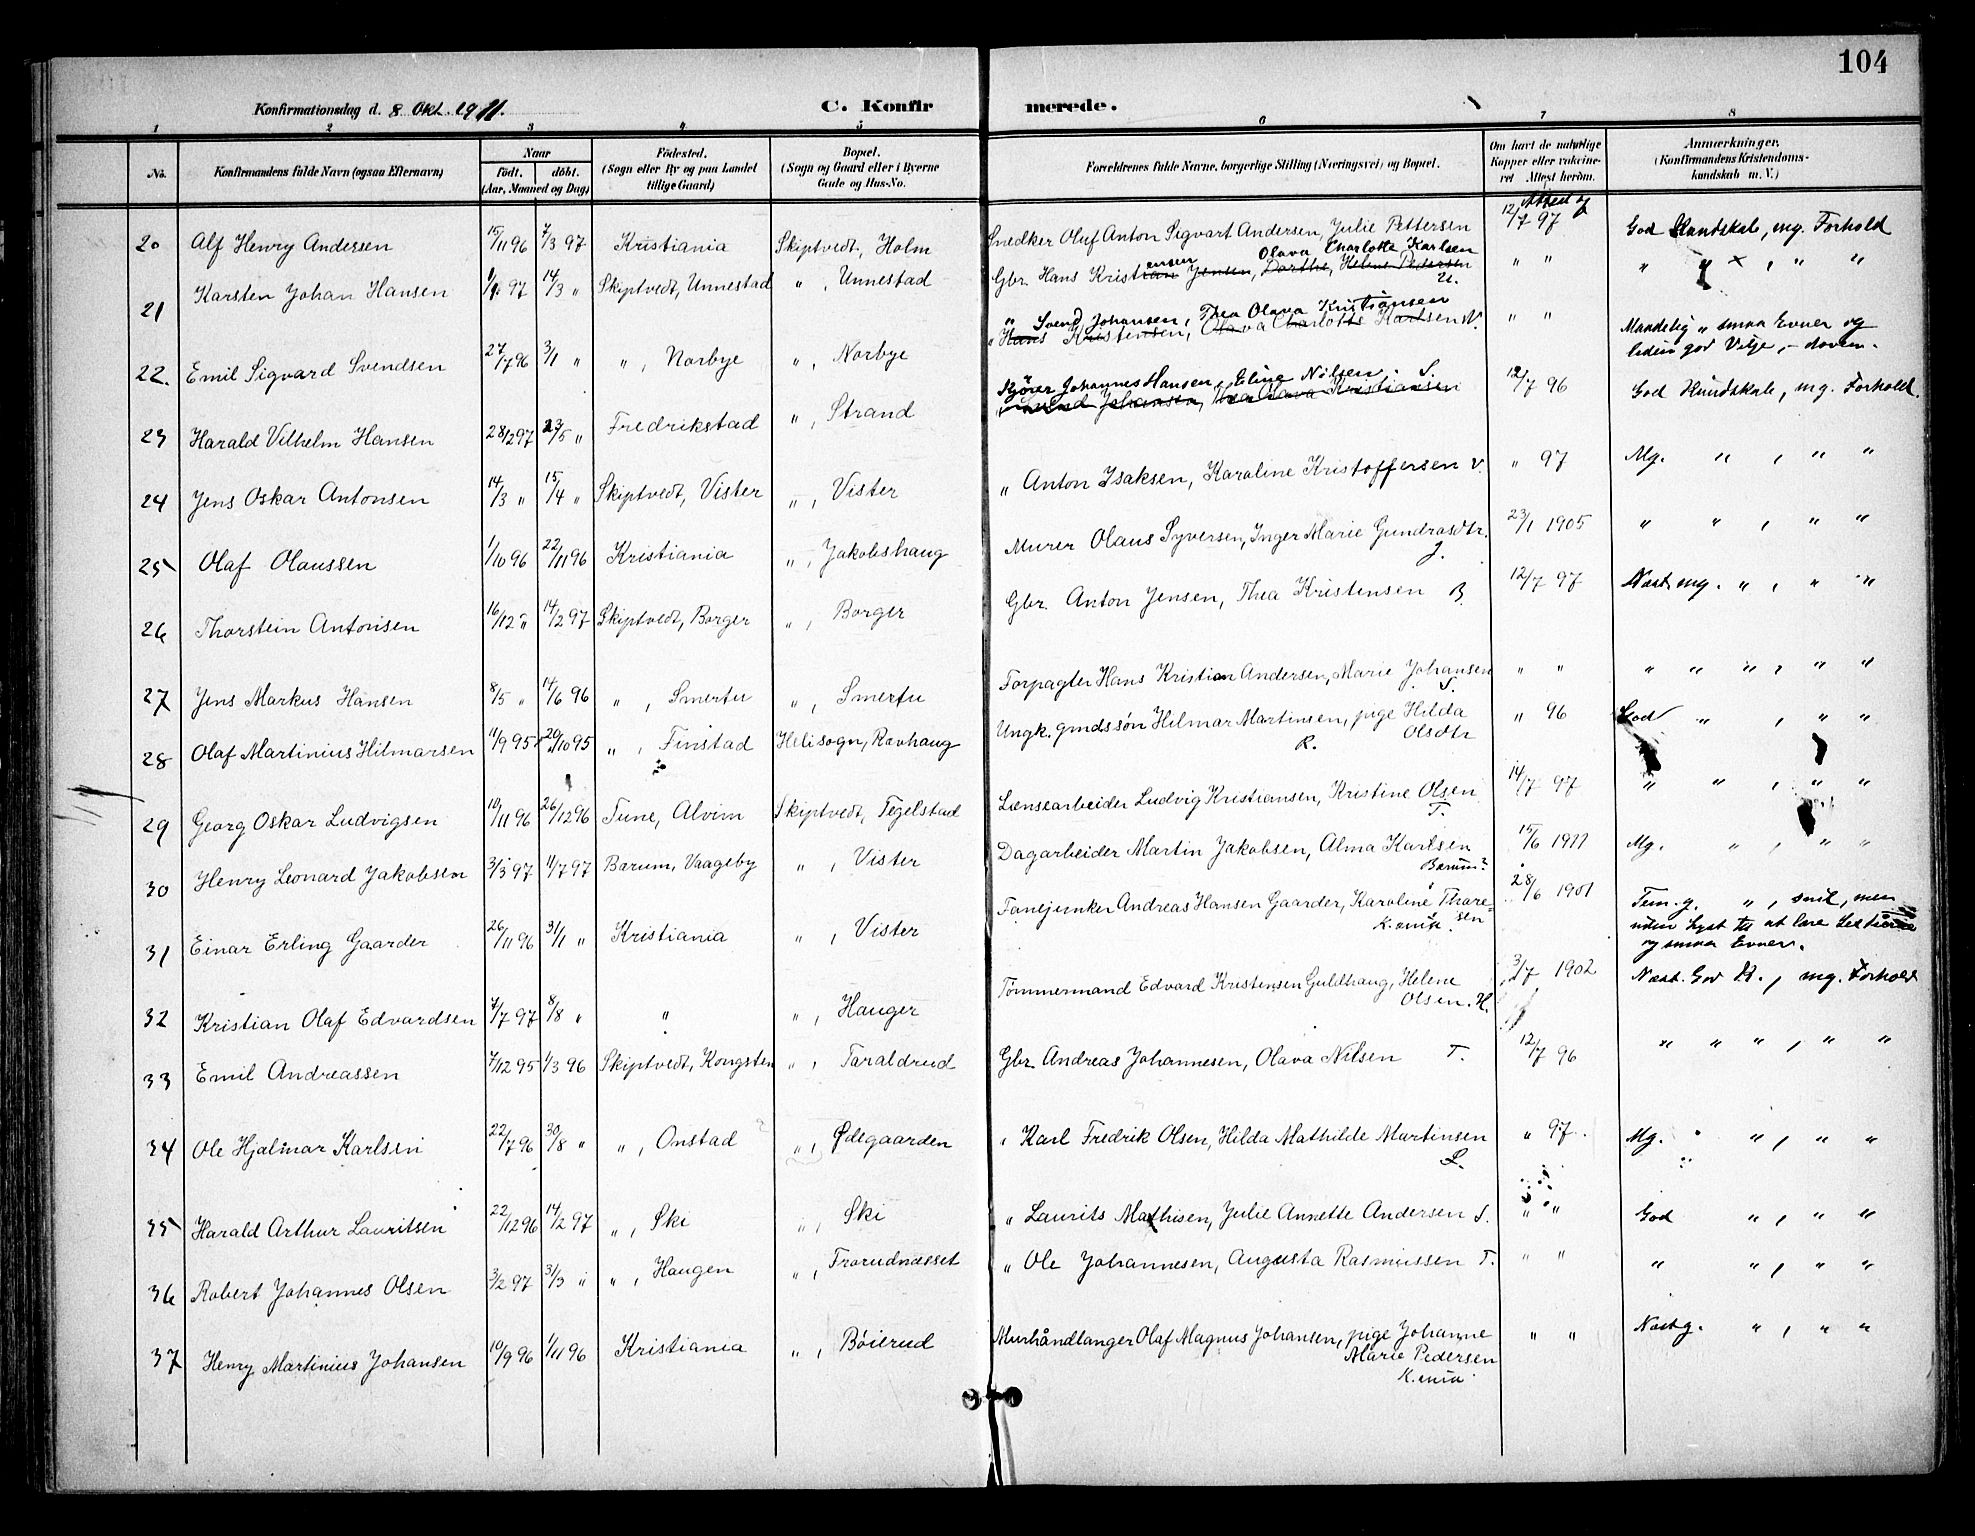 104
Konfirmationsdag d. 8 Okt. 1911.
C. Konfirmerede.
1 2 3 4 5 6 7 8
No. Konfirmandens fulde Navn (ogsaa Efternavn) Naar født. døbt. (Aar, Maaned og Dag) Fødested. (Sogn eller By og paa Landet tillige Gaard) Bopæl. (Sogn og Gaard eller i Byerne Gade og Hus-No. Forældrenes fulde Navne, borgerlige Stilling (Næringsvei) og Bopæl. Om havt de naturlige Kopper eller vakcineret Attest herom. Anmærkninger. (Konfirmandens Kristendomskundskab m. V.)
20 Alf Henry Andersen 15/11 96 7/3 97 Kristiania Skiptvedt, Holm Snedker Oluf Anton Sigvart Andersen, Julie Pettersen Attest af 12/7 97 God Kundskab, mg. Forhold
21 Karsten Johan Hansen 97 14/3 " Skiptvedt, Unnestad " , Unnestad Gbr. Hans Kristensen Olava Charlotte Karlsen U. " " " " , " "
Kristian Jensen, Dorthe, Helene Pedersen
22. Emil Sigvard Svendsen 27/7 96 3/1 " " , Norbye " , Norbye " Svend Johansen, Thea Olava Kristiansen N. " " Maadelig " smaa Evner og
Hans Kristensen, Olava Charlotte Karlsen
liden god Vilje, - doven.
23 Harald Vilhelm Hansen 28/2 97 23/5 " Fredrikstad " , Strand Kjører Johannes Hansen, Eline Nilsen. S. 12/7 96 God Kundskab, mg. Forhold.
Svend Johansen, Thea Olava Kristiansen
24 Jens Oskar Antonsen 14/3 " 15/4 " Skiptvedt, Vister " , Vister " Anton Isaksen, Karoline Kristoffersen V. " 97 Mg. " , " "
25 Olaf Olaussen 1/10 96 22/11 96 Kristiania " , Jakobshaug Murer Olaus Syversen, Inger Marie Gundrosdtr. J. 23/1 1905 " " , " "
26 Thorstein Antonsen 16/12 " 14/2 97 Skiptvedt, Borger " , Borger Gbr. Anton Jensen, Thea Kristensen B. 12/7 97 Næst mg. " , " "
27 Jens Markus Hansen 8/5 " 14/6 96 " , Smertu " , Smertu Forpagter Hans Kristian Andersen, Marie Johansen S. " " " " " , " "
28 Olaf Martinius Hilmarsen 11/9 95 20/10 95 " , Finstad Heli sogn, Ravhaug Ungk. gmdssøn Hilmar Martinsen, pige Hilda Olsdtr R. " 96 God " , " "
29 Georg Oskar Ludvigsen 10/11 96 26/12 96 Tune, Alvim Skiptvedt, Tegelstad Lænsearbeider Ludvig Kristiansen, Kristine Olsen T. 14/7 97 " " , " "
30 Henry Leonard Jakobsen 3/3 97 11/7 97 Barum, Vaageby " , Vister Dagarbeider Martin Jakobsen, Alma Karlsen Barum? 15/6 1911 Mg. " , " "
31 Einar Erling Gaarder 26/11 96 31/1 " Kristiania " , Vister Fanejunker Andreas Hansen Gaarder, Karoline Thoresen K.ania. 28/6 1901 Tem. g. " , snil, men
uden Lyst til at lære
og smaa Evner.
32 Kristian Olaf Edvardsen 7/7 97 8/8 " " " , Hauger Tømmermand Edvard Kristensen Guldhaug, Helene Olsen. H. 3/7 1902 Næst. God K., mg. Forhold
33 Emil Andreassen 7/12 95 1/3 96 Skiptvedt, Kongsten " , Taraldrud Gbr. Andreas Johannesen, Olava Nilsen T. 12/7 96 " " " , " "
34 Ole Hjalmar Karlsen 22/7 96 30/8 " " , Onstad " , Ødegaarden " Karl Fredrik Olsen, Hilda Mathilde Martinsen " 97. Mg. " , " "
35 Harald Arthur Lauritsen 22/12 96 14/2 97 " , Ski " , Ski " Laurits Mathisen, Julie Annette Andersen S. " " God " , " "
36 Robert Johannes Olsen 3/2 97 31/3 " " , Haugen " , Frorudnæsset " Ole Johannesen, Augusta Rasmussen T. " " " " , " "
37 Henry Martinius Johansen 10/9 96 1/11 96 Kristiania " , Bøierud Murhåndlanger Olaf Magnus Johansen, pige Johanne Marie Pedersen K.ania. " " Næst g. " , " "